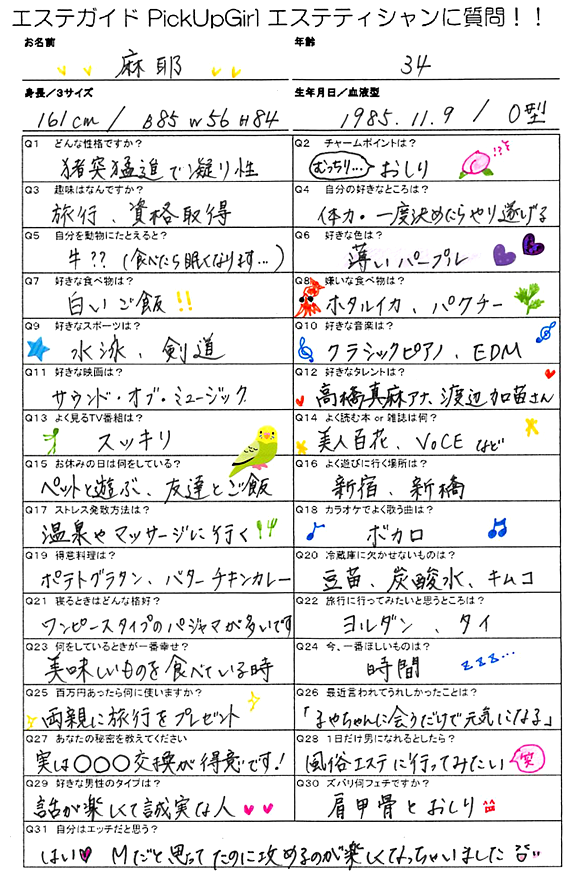 エステガイド PickUpGirl エステティシャンに質問！！
お名前
麻耶
年齢
34
身長／3サイズ
161cm / B85 W56 H84
生年月日／血液型
1985.11.9 / O型
Q1 どんな性格ですか？
猪突猛進で凝り性
Q2 チャームポイントは？
むっちり… おしり !?
Q3 趣味はなんですか？
旅行、資格取得
Q4 自分の好きなところは？
体力・一度決めたらやり遂げる
Q5 自分を動物にたとえると？
牛??（食べたら眠くなります…）
Q6 好きな色は？
薄いパープル
Q7 好きな食べ物は？
白いご飯!!
Q8 嫌いな食べ物は？
ホタルイカ、パクチー
Q9 好きなスポーツは？
水泳、剣道
Q10 好きな音楽は？
クラシックピアノ、EDM
Q11 好きな映画は？
サウンド・オブ・ミュージック
Q12 好きなタレントは？
高橋真麻アナ、渡辺加苗さん
Q13 よく見るTV番組は？
スッキリ
Q14 よく読む本 or 雑誌は何？
美人百花、VoCE など
Q15 お休みの日は何をしている？
ペットと遊ぶ、友達とご飯
Q16 よく遊びに行く場所は？
新宿、新橋
Q17 ストレス発散方法は？
温泉やマッサージに行く
Q18 カラオケでよく歌う曲は？
ボカロ
Q19 得意料理は？
ポテトグラタン、バターチキンカレー
Q20 冷蔵庫に欠かせないものは？
豆苗、炭酸水、キムコ
Q21 寝るときはどんな格好？
ワンピースタイプのパジャマが多いです
Q22 旅行に行ってみたいと思うところは？
ヨルダン、タイ
Q23 何をしているときが一番幸せ？
美味しいものを食べている時
Q24 今、一番ほしいものは？
時間 zzz…
Q25 百万円あったら何に使いますか？
両親に旅行をプレゼント
Q26 最近言われてうれしかったことは？
「まやちゃんに会うだけで元気になる」
Q27 あなたの秘密を教えてください
実は○○○交換が得意です！
Q28 1日だけ男になれるとしたら？
風俗エステに行ってみたい 笑
Q29 好きな男性のタイプは？
話が楽しくて誠実な人
Q30 ズバリ何フェチですか？
肩甲骨とおしり
Q31 自分はエッチだと思う？
はい♥ Mだと思ってたのに攻めるのが楽しくなっちゃいました